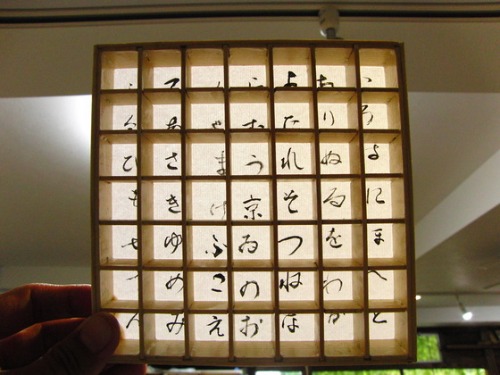 いろはにほへと
ちりぬるをわか
よたれそつねな
らむう京ゐのお
くやまけふこえ
てあさきゆめみ
しゑひもせすん